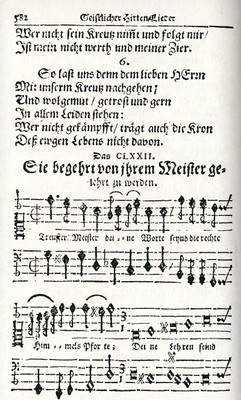 582 Geistlicher Hirten-Lieder
Wer nicht sein Kreuz nim̅t und folgt mir/
Ist mein nicht werth und meiner Zier.
6.
So last uns denn dem lieben HErrn
Mit unserm Kreuz nachgehen;
Und wolgemut/ getrost und gern
In allem Leiden stehen:
Wer nicht gekämpfft/ trägt auch die Kron
Deß ewgen Lebens nicht davon.
Das CLXXII.
Sie begehrt von jhrem Meister ge-
lehrt zu werden.
Treuster Meister dei--ne Worte seynd die rechte
Him--mels Pforte; Dei ne Lehren seind